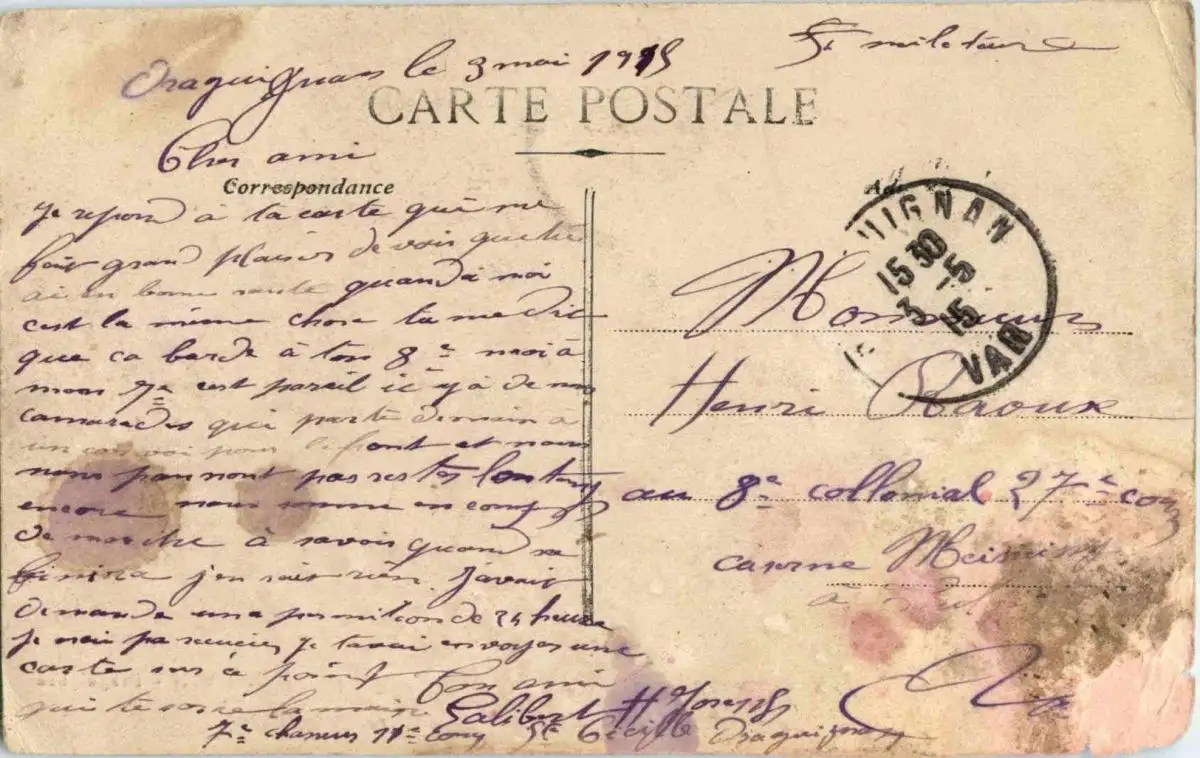 Draguignan le 3 mai 1915
Ft militaire
CARTE POSTALE
Cher ami
Correspondance
Je repond à ta carte qui me
fait grand plaisir de voir que tu
ai en bonne sente quand à moi
c'est la même chose tu me dit
que ca barde à ton 8e moi à
mon 7e c'est pareil il y à de nos
camarades qui parte demain à
un convoi pour le front et nous
nous pouront pas restes lontemp
encore nous somme en comp
de marche à savoir quand sa
finira j'en sait rien j'avait
demande une permition de 24 heure
je nai pa reucier je tavai envoyer une
carte sur à point ton ami
qui te serre la main Galibert H Joseph
7e chasseur 11e comp Ste Cécile Draguignan
DRAGUIGNAN
15 30
3 -5
15
VAR
Monsieur
Henri Raoux
au 8e collonial 27e comp
caserne
à